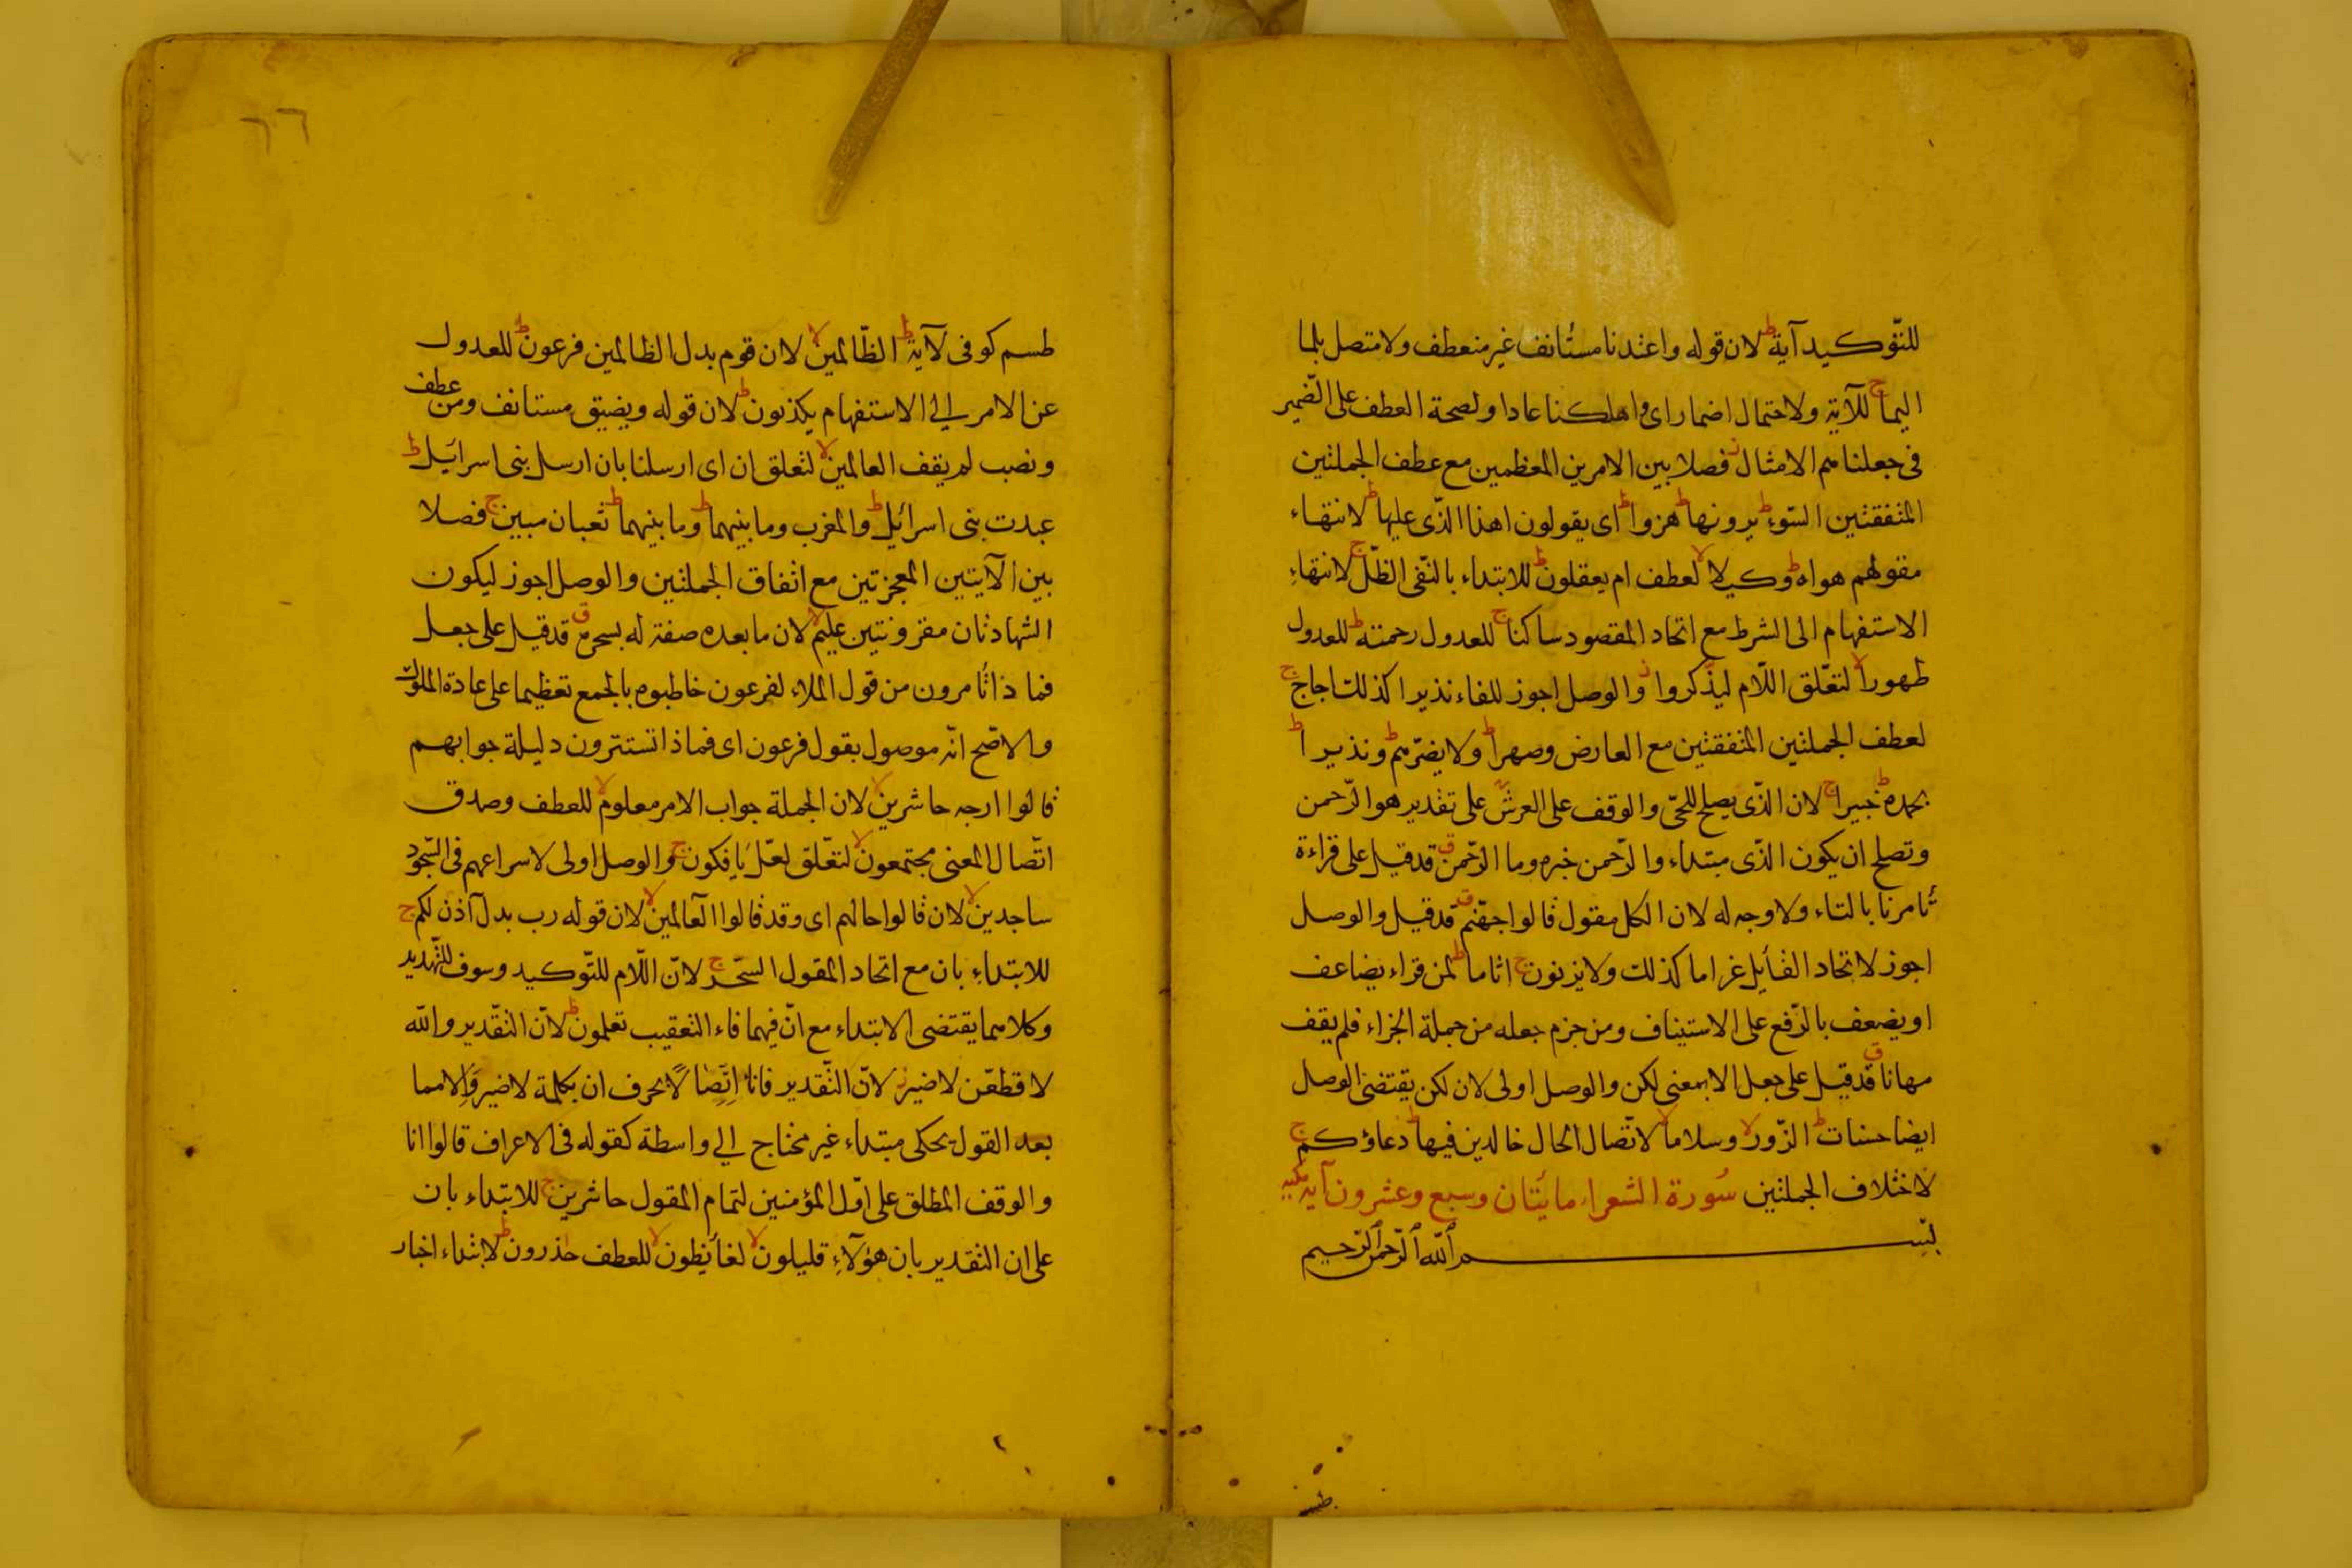 للتّوكيد آية ط لان قوله واعتدنا مستأنف غير منعطف ولا متصل بلما
اليما ج للآية ولاحتمال اضمار اى واهلكنا عادا ولصحة العطف على الضّمير
فى جعلناهم الامثال ز فصلا بين الامرين المعظمين مع عطف الجملتين
المتفقتين السّوء ط يرونها ط هزوا ط اى يقولون اهذا الذّى عليها ط لانتهاء
مقولهم هواه ط وكيلا لا لعطف ام يعقلون ط للابتداء بالنّفى الظّلّ ج لانتهاء
الاستفهام الى الشرط مع اتحاد المقصود ساكنا ج للعدول رحمته ط للعدول
طهورا لا لتعّلق اللّام ليذّكروا ز والوصل اجوز للفاء نذيرا كذلك اجاج ج
لعطف الجملتين المتفقتين مع العارض وصهرا ط ولا يضرّهم ط ونذيرا ط
بحمده ط خبيرا ج لان الذّى يصلح للحّى والوقف على العرش على تقدير هو الرّحمن
وتصلح ان يكون الذّى مبتداء والرّحمن خبره وما الرّحمن ق قد قيل على قراءة
تأمرنا بالتاء ولا وجه له لان الكل مقول قالوا جهّنم ق قد قيل والوصل
اجوز لاتحاد القأيل غراما كذلك ولا يزنون ج اثاما ط لمن قراء يضاعف
او يضعف بالرّفع على الاستيناف ومن جزم جعله من جملة الجزاء فلم يقف
مهانا ق قد قيل على جعل الا بمعنى لكن والوصل اولى لان لكن يقتضى الوصل
ايضا حسنات ط الزّور لا وسلاما لا لاتّصال الحال خالدين فيها ط دعاؤكم ج
لاختلاف الجملتين سُورة الشعراء مائتان وسبع وعشرون آية مكية
بسم الله الرّحمن الرّحيم
طسم
٦٦
طسم كوفى لآية ط الظّالمين لا لان قوم بدل الظالمين فرعون ط للعدول
عن الامر الى الاستفهام يكذبون ط لان قوله ويضيق مستانف ومن عطف
ونصب لم يقف العالمين لا لتعلق ان اى ارسلنا بان ارسل بنى اسرائيل ط
عبدت بنى اسرائيل ط والمغرب وما بينهما ط وما بينهما ط ثعبان مبين ج فصلا
بين الآيتين المعجزتين مع اتفاق الجملتين والوصل اجوز ليكون
الشهادتان مقرونتين عليم لا لان ما بعده صفة له بسحره ق قد قيل على جعل
فماذا تأمرون من قول الملاء لفرعون خاطبوه بالجمع تعظيما على عادة الملوك
والاصّح انّه موصول بقول فرعون اى فماذا تستترون دليلة جوابهم
قالوا ارجه حاشرين لا لان الجملة جواب الامر معلوم لا للعطف وصدق
اتّصال المعنى مجتمعون لا لتعّلق لعّل يأفكون ج والوصل اولى لاسراعهم فى السّجود
ساجدين لا لان قالوا حالهم اى وقد قالوا العالمين لا لان قوله رب بدل آذن لكم ج
للابتداء بان مع اتحاد المقول السّحر ج لانّ اللّام للتّوكيد وسوف للتّهديد
وكلاهما يقتضى الابتداء مع انّ فيهما فاء التعقيب تعلمون ط لانّ التّقدير والله
لاقطعّن لا ضير ز لانّ التّقدير فانا اتّصالا بحرف ان بكلمة لا ضير والا مما
بعد القول يحكى مبتداء غير محتاج الى واسطة كقوله فى الاعراف قالوا انا
والوقف المطلق على اوّل المؤمنين لتمام المقول حاشرين ج للابتداء بان
على ان التقدير بان هؤلآء قليلون لا لغائظون لا للعطف حذرون ط لابتداء اخبار